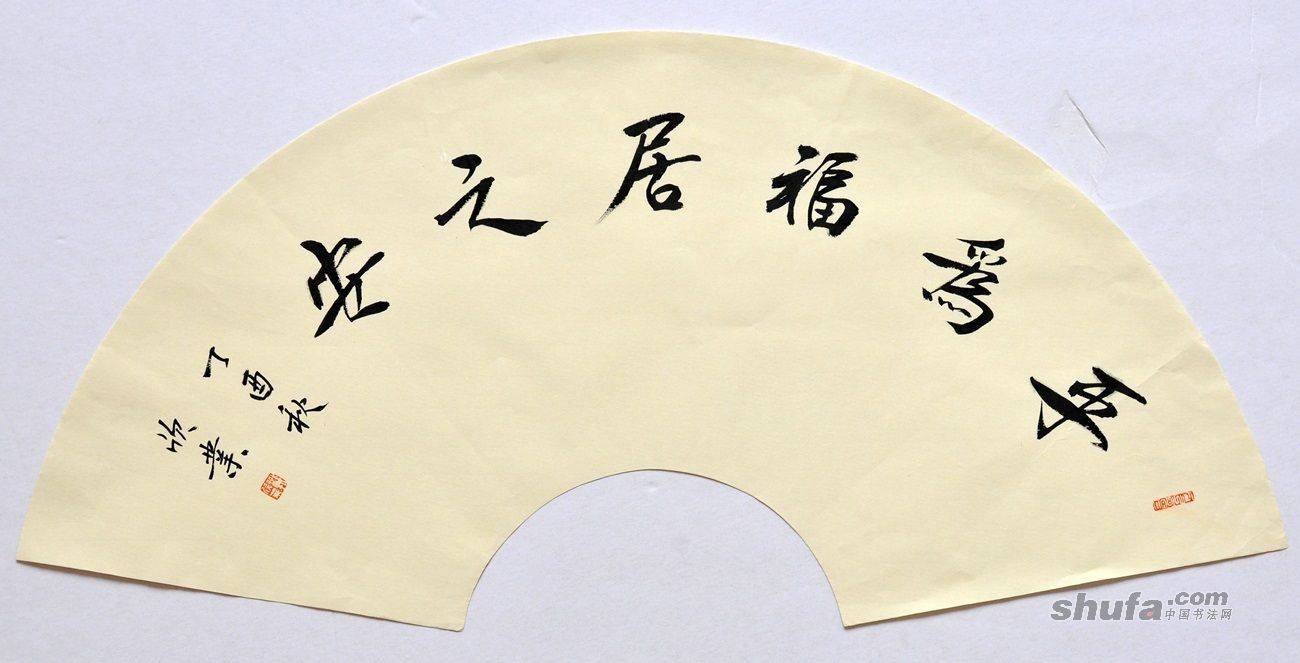 平為福居之安
丁酉秋
欣業
shufa.com
中国书法网